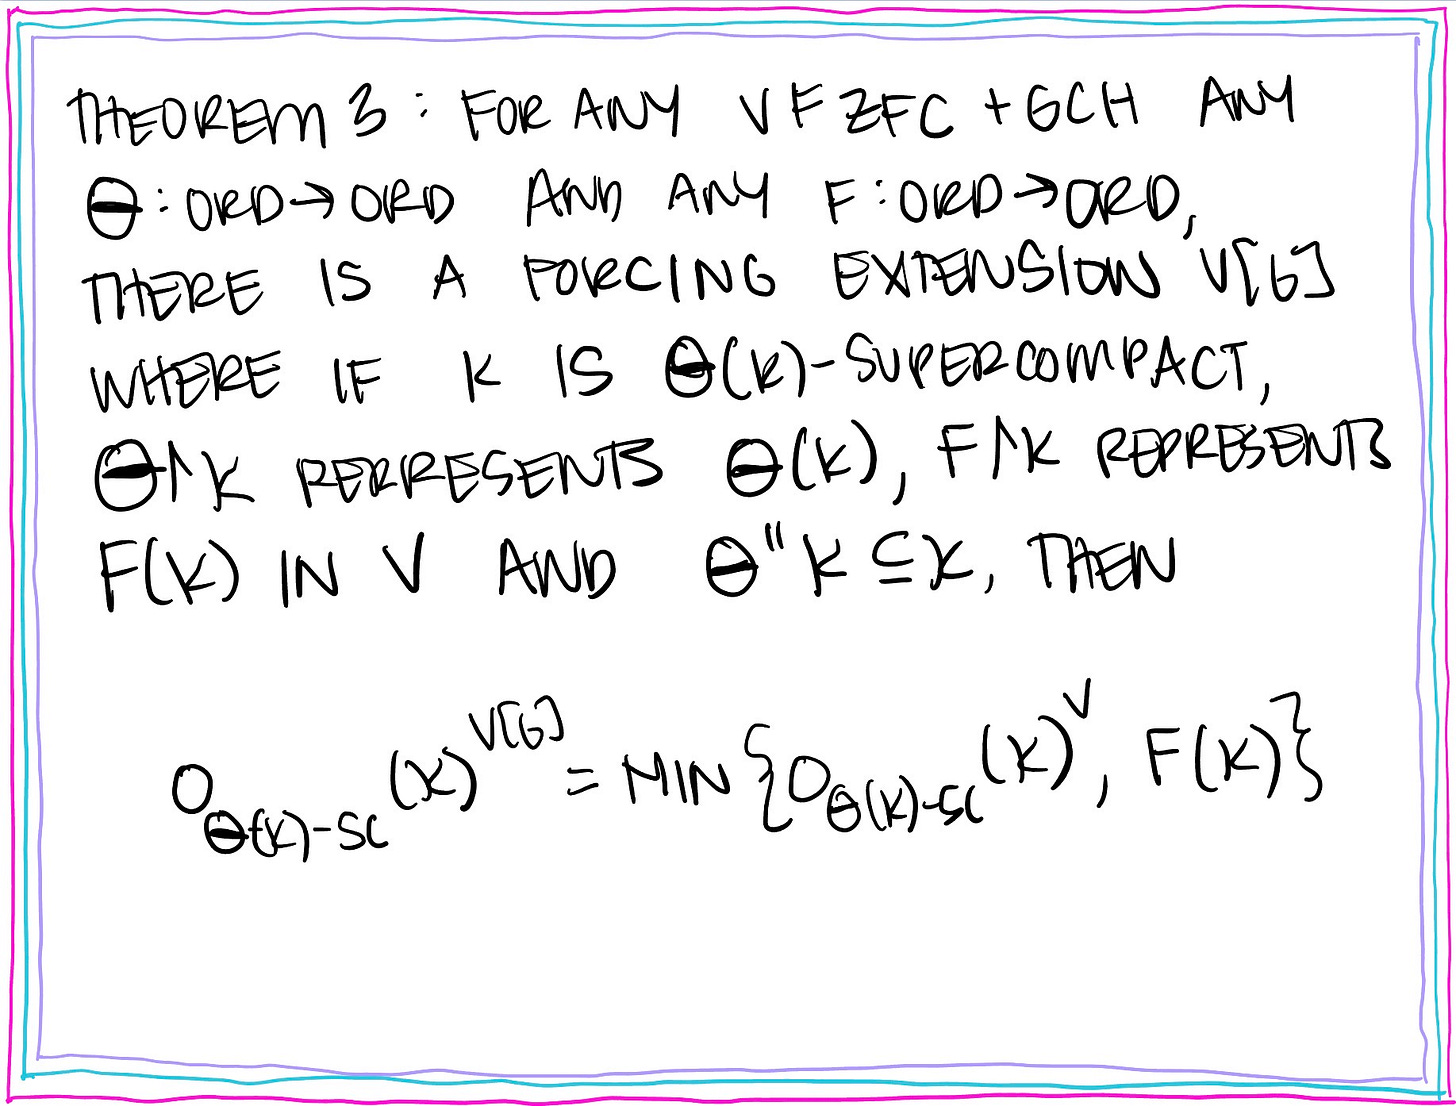 THEOREM 3: FOR ANY V⊨ZFC+GCH ANY
Θ:ORD→ORD AND ANY F:ORD→ORD,
THERE IS A FORCING EXTENSION V[G]
WHERE IF κ IS Θ(κ)-SUPERCOMPACT,
Θ↾κ REPRESENTS Θ(κ), F↾κ REPRESENTS
F(κ) IN V AND Θ"κ⊆κ, THEN
O_{Θ(κ)-SC}(κ)^{V[G]} = MIN{O_{Θ(κ)-SC}(κ)^V, F(κ)}